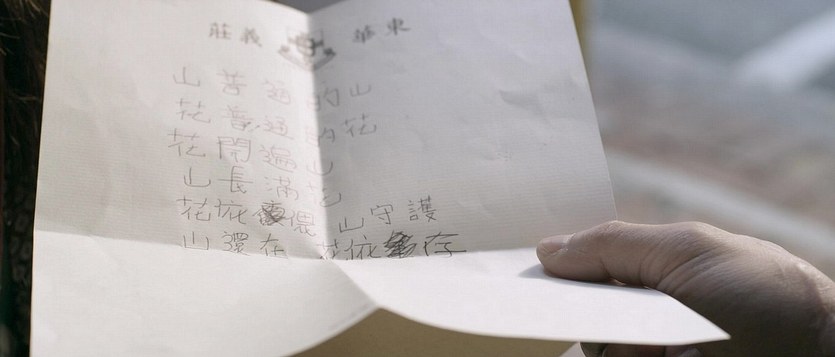 東華義莊
山普通的山
花普通的花
花開遍山
山長滿花
花依偎 山守護
山還在 花依存